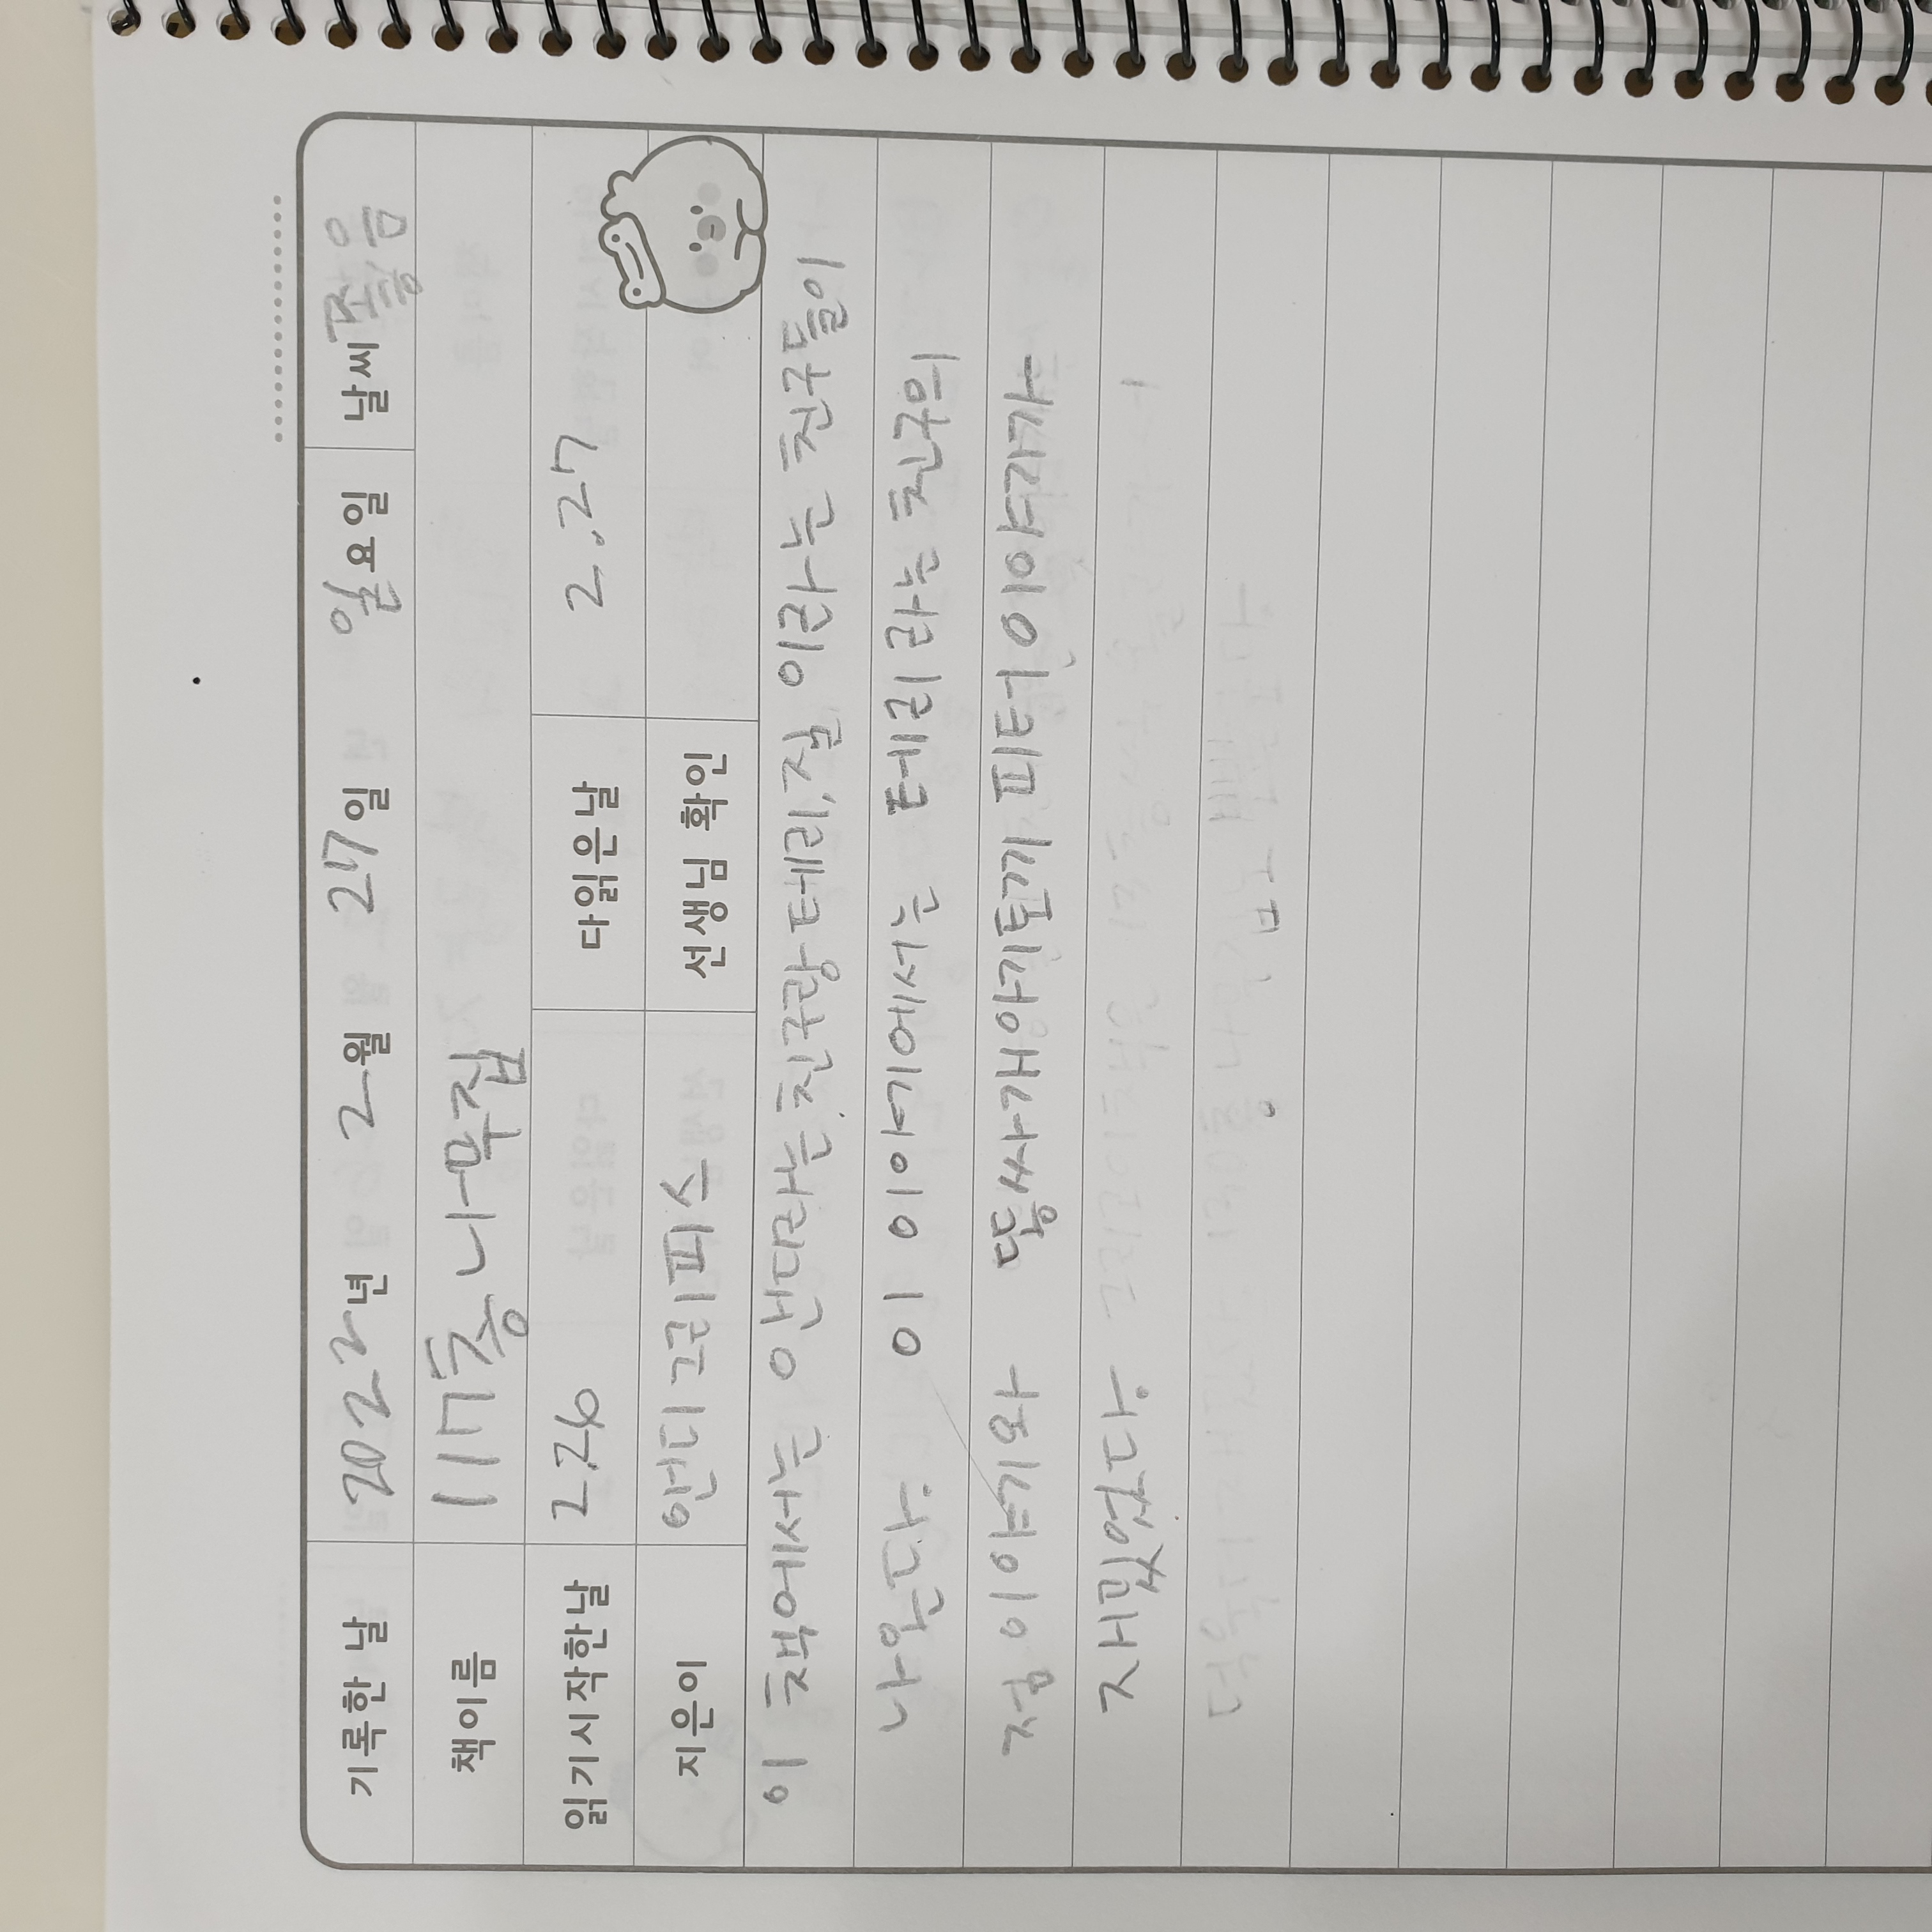 기록한 날 2022년 2월 27일 일요일 날씨 좋음
책이름 117층 나무집
읽기시작한날 2.26 다읽은날 2.27
지은이 앤디 그리피스 선생님 확인
이 책에서는 앤디라는 친구랑 테리, 질 이라는 친구들이
나온다. 이 이야기에서는 테리 라는 친구의
점 이야기와 똥싸개아기토끼 피터 이야기가
재밌었다. 그리고이책은 13층 올라가서
더욱더 재밌었다 130층 나무집도